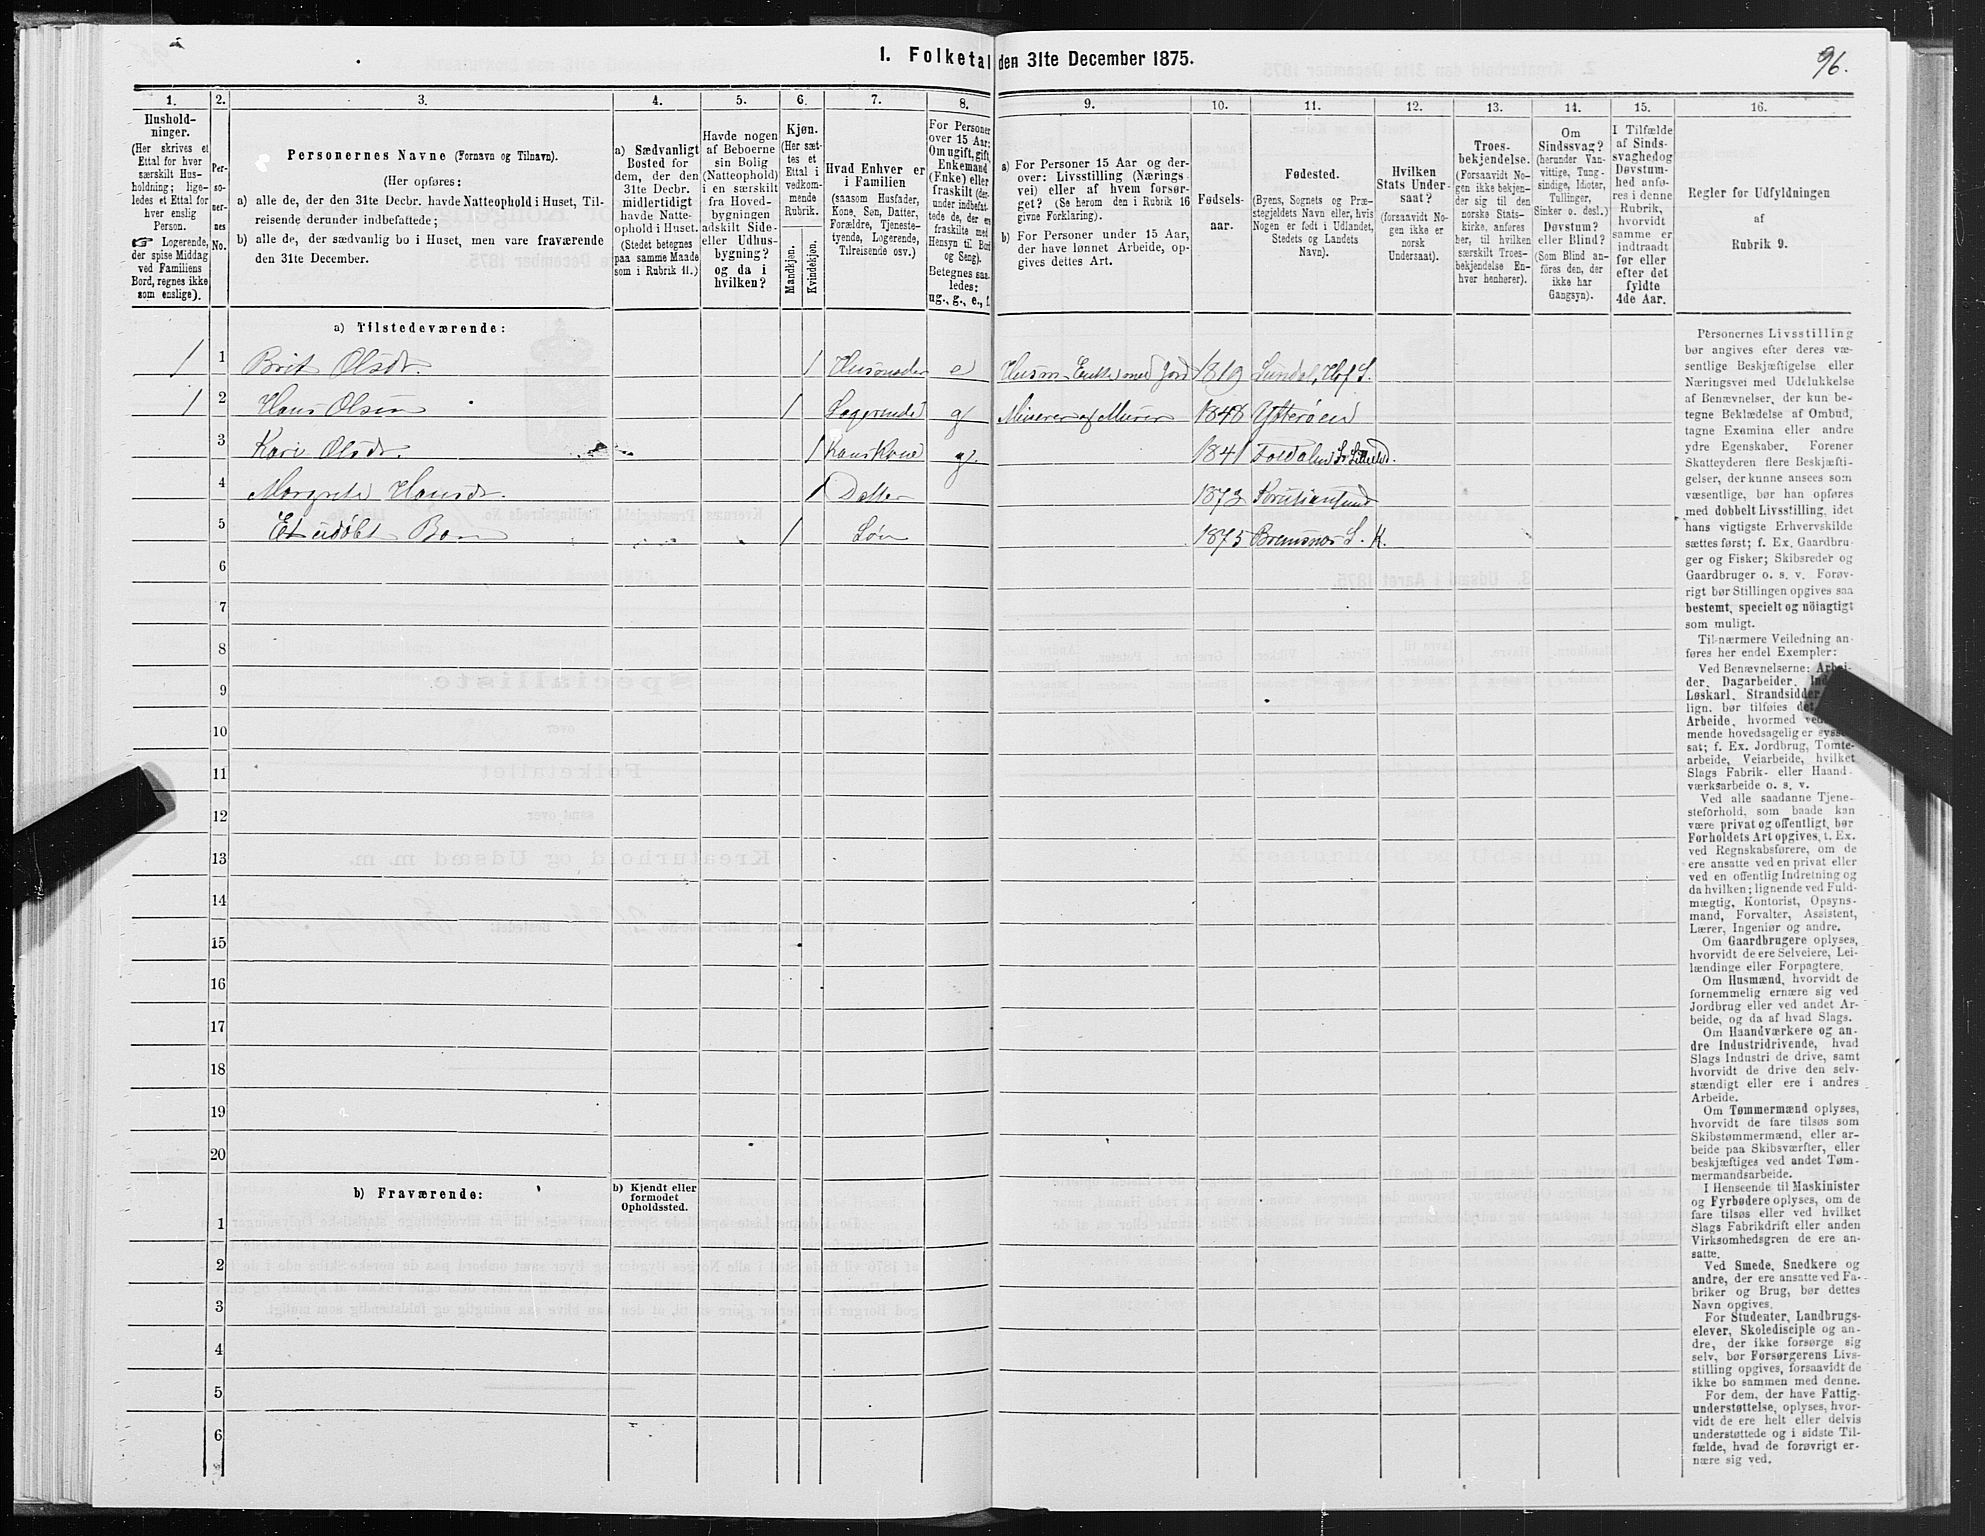 1. Folketal den 31te December 1875.
96.
1.
2.
3.
4.
5.
6.
7.
8.
9.
10.
11.
12.
13.
14.
15.
16.
Hushold-
ninger.
(Her skrives et
Ettal for hver
særskilt Hus-
holdning; lige-
ledes et Ettal for
hver enslig
Person.
☞ Logerende,
der spise Middag
ved Familiens
Bord, regnes ikke
som enslige).
Per-
so-
ner-
nes
No.
Personernes Navne (Fornavn og Tilnavn).
(Her opføres:
a) alle de, der den 31te Decbr. havde Natteophold i Huset, Til-
reisende derunder indbefattede;
b) alle de, der sædvanlig bo i Huset, men vare fraværende
den 31te December.
a) Sædvanligt
Bosted for
dem, der den
31te Decbr.
midlertidigt
havde Natte-
ophold i Huset.
(Stedet betegnes
paa samme Maade
som i Rubrik 11.)
Havde nogen
af Beboerne
sin Bolig
(Natteophold)
i en særskilt
fra Hoved-
bygningen
adskilt Side-
eller Udhus-
bygning?
og da i
hvilken?
Kjøn.
(Her sæt-
tes et
Ettal i
vedkom-
mende
Rubrik.
Mandkjøn.
Kvindekjøn.
Hvad Enhver er
i Familien
(saasom Husfader,
Kone, Søn, Datter,
Forældre, Tjeneste-
tyende, Logerende,
Tilreisende osv.)
For Personer
over 15 Aar:
Om ugift, gift,
Enkemand
(Enke) eller
fraskilt (der-
under indbefat-
tede de, der ere
fraskilte med
Hensyn til Bord
og Seng).
Betegnes saa-
ledes:
ug., g., e., f.
a) For Personer 15 Aar og der-
over: Livsstilling (Nærings-
vei) eller af hvem forsør-
get? (Se herom den i Rubrik 16
givne Forklaring).
b) For Personer under 15 Aar,
der have lønnet Arbeide, op-
gives dettes Art.
Fødsels-
aar.
Fødested.
(Byens, Sognets og Præ-
stegjeldets Navn eller, hvis
Nogen er født i Udlandet,
Stedets og Landets
Navn).
Hvilken
Stats Under-
saat?
(forsaavidt No-
gen ikke er
norsk
Undersaat).
Troes-
bekjendelse.
(Forsaavidt No-
gen ikke bekjen-
der sig til den
norske Stats-
kirke, anføres
her, til hvilken
særskilt Troes-
bekjendelse En-
hver henhører).
Om
Sindssvag?
(herunder Van-
vittige, Tung-
sindige, Idioter,
Tullinger,
Sinker o. desl.)
Døvstum?
eller Blind?
(Som Blind an-
føres den, der
ikke har
Gangsyn).
I Tilfælde
af Sinds-
svaghed og
Døvstum-
hed anfø-
res i denne
Rubrik,
hvorvidt
samme er
indtraadt
før eller
efter det
fyldte
4de Aar.
Regler for Udfyldningen
af
Rubrik 9.
a) Tilstedeværende:
1 1 Brit Olsdr. 1 Husmoder e Husm Enke med Jord 1819 Sundal, Hof S.
1 2 Hans Olsen 1 Logerende g Minerer og Murer 1848 Ytterøen
3 Kari Olsdr. 1 Hans Kone g. 1841
4 Margrete Hansdr. 1 Datter 1872 Kristiansund
5 Et udøbt Barn 1 Søn 1875 Bremsnes S. K.
6
7
8
9
10
11
12
13
14
15
16
17
18
19
20
b) Fraværende:
b) Kjendt eller
formodet
Opholdssted.
1
2
3
4
5
6
Personernes Livsstilling
bør angives efter deres væ-
sentlige Beskjæftigelse eller
Næringsvei med Udelukkelse
af Benævnelser, der kun be-
tegne Beklædelse af Ombud,
tagne Examina eller andre
ydre Egenskaber. Forener
Skatteyderen flere Beskjæfti-
gelser, der kunne ansees som
væsentlige, bør han opføres
med dobbelt Livsstilling, idet
hans vigtigste Erhvervskilde
sættes først; f. Ex. Gaardbru-
ger og Fisker; Skibsreder og
Gaardbruger o. s. v. Forøv-
rigt bør Stillingen opgives saa
bestemt, specielt og nöiagtigt
som muligt.
Til nærmere Veiledning an-
føres her endel Exempler:
Ved Benævnelserne: Arbei-
der, Dagarbeider,
Løskarl, Strandsidder
lign. bør tilføies det
Arbeide, hvormed
mende hovedsagelig er syssel-
sat; f. Ex. Jordbrug, Tomte-
arbeide, Veiarbeide, hvilket
Slags Fabrik- eller Haand-
værksarbeide o. s. v.
Ved alle saadanne Tjene-
steforhold, som baade kan
være privat og offentligt, bør
Forholdets Art opgives, t. Ex.
ved Regnskabsførere, om de
ere ansatte ved en privat eller
ved en offentlig Indretning og
da hvilken; lignende ved Fuld-
mægtig, Kontorist, Opsyns-
mand, Forvalter, Assistent,
Lærer, Ingeniør og andre.
Om Gaardbrugere oplyses,
hvorvidt de ere Selveiere, Lei-
lændinge eller Forpagtere.
Om Husmænd, hvorvidt de
fornemmelig ernære sig ved
Jordbrug eller ved andet Ar-
beide, og da af hvad Slags.
Om Haandværkere og an-
dre Industridrivende, hvad
Slags Industri de drive, samt
hvorvidt de drive den selv-
stændigt eller ere i andres
Arbeide.
Om Tømmermænd oplyses,
hvorvidt de fare tilsøs som
Skibstømmermænd, eller ar-
beide paa Skibsværfter, eller
beskjæftiges ved andet Tøm-
mermandsarbeide.
I Henseende til Maskinister
og Fyrbødere oplyses, om de
fare tilsøs eller ved hvilket
Slags Fabrikdrift eller anden
Virksomhedsgren de ere an-
satte.
Ved Smede, Snedkere og
andre, der ere ansatte ved Fa-
briker og Brug, bør dettes
Navn opgives.
For Studenter, Landbrugs-
elever, Skoledisciple og an-
dre, der ikke forsørge sig
selv, bør Forsørgerens Livs-
stilling opgives, forsaavidt de
ikke bo sammen med denne.
For dem, der have Fattig-
understøttelse, oplyses, hvor-
vidt de ere helt eller delvis
understøttede og i sidste Til-
fælde, hvad de forøvrigt er-
nære sig ved.